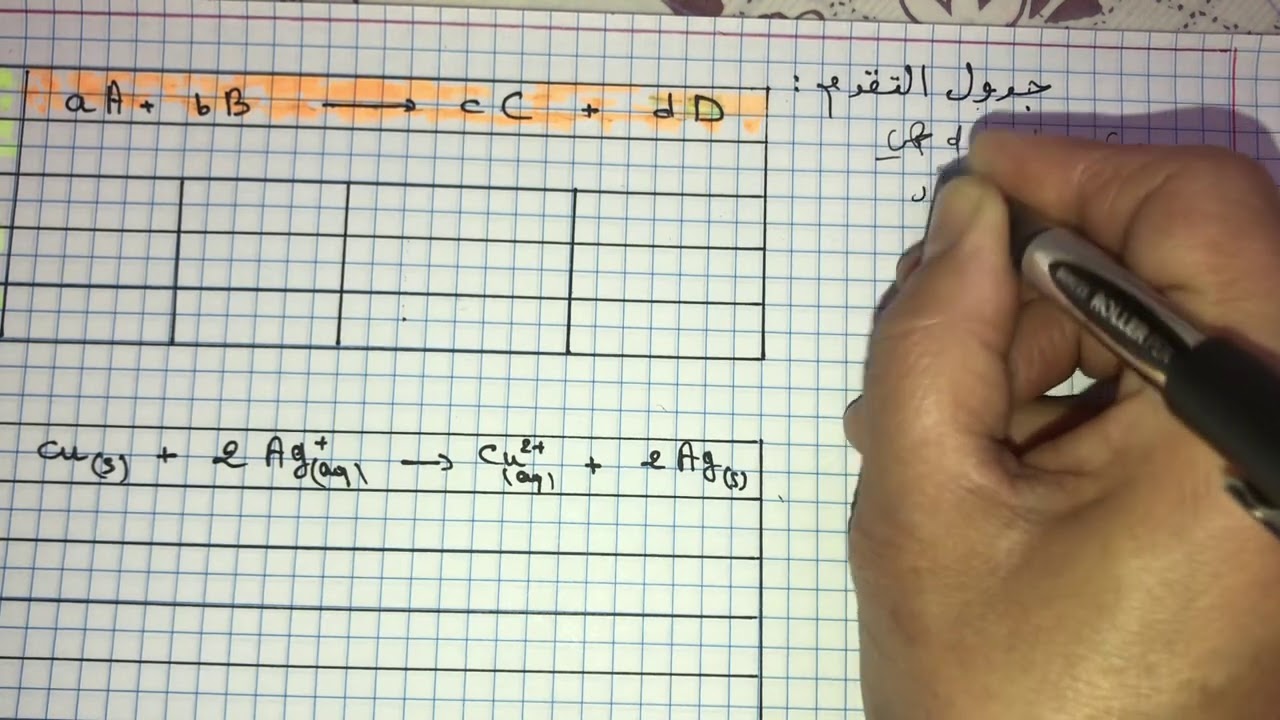 جدول التقدم :
aA + bB ⟶ cC + dD
Cu(s) + 2 Ag⁺(aq) ⟶ Cu²⁺(aq) + 2 Ag(s)
ROLLER